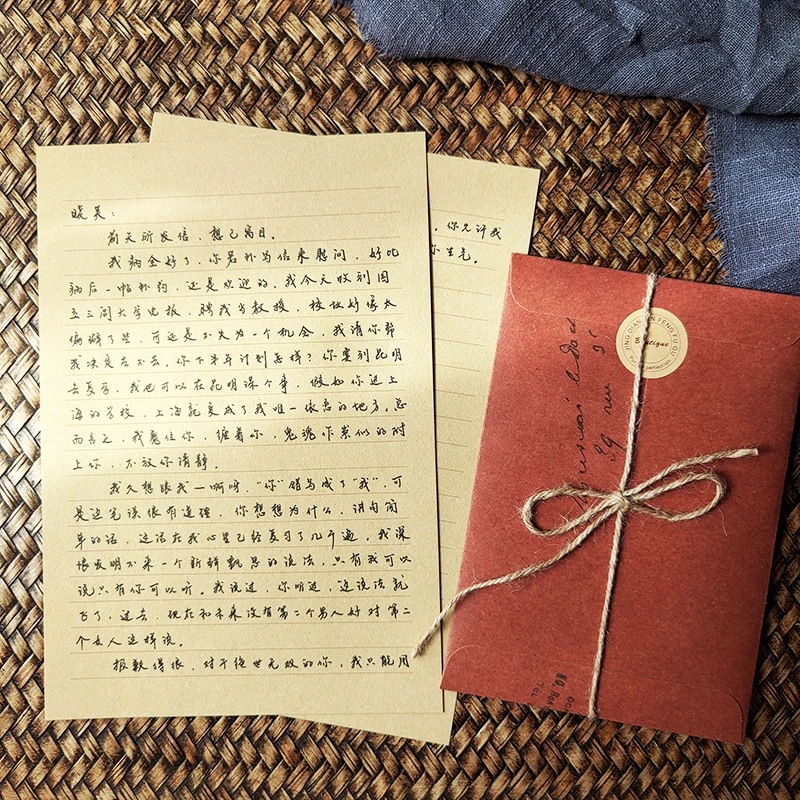 晓芙:
前天所发信,想已寓目。
我病全好了,你若补写信来慰问,好比
病后一帖补药,还是欢迎的。我今天收到国
立三闾大学电报,聘我当教授。校址好像太
偏僻了些,可还是不失为一个机会。我请你帮
我决定去不去。你下半年计划怎样?你要到昆明
去复学,我也可以在昆明谋个事,假如你进上
海的学校,上海就变成了我唯一依恋的地方。总
而言之,我魔住你,缠着你,冤魂作祟似的附
上你,不放你清静。
我久想跟我一啊呀,“你”错写成了“我”,可
是这笔误很有道理,你想想为什么,讲句简
单的话,这话在我心里已经复习了几千遍。我深
恨发明不来一个新鲜飘忽的说法,只有我可以
说只有你可以听。我说过,你听过,这说法就
飞了,过去、现在和未来没有第二个男人好对第二
个女人这样说。
抱歉得很,对于绝世无双的你,我只能用
,你允许我
你生气。
antique